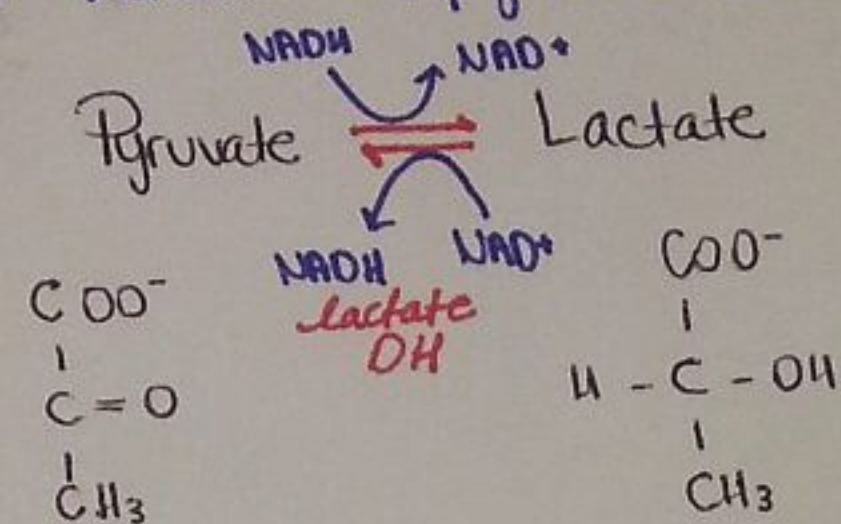 NADH NAD+
Pyruvate Lactate
NADH NAD+
lactate
DH
COO-
C = O
CH3
COO-
H - C - OH
CH3